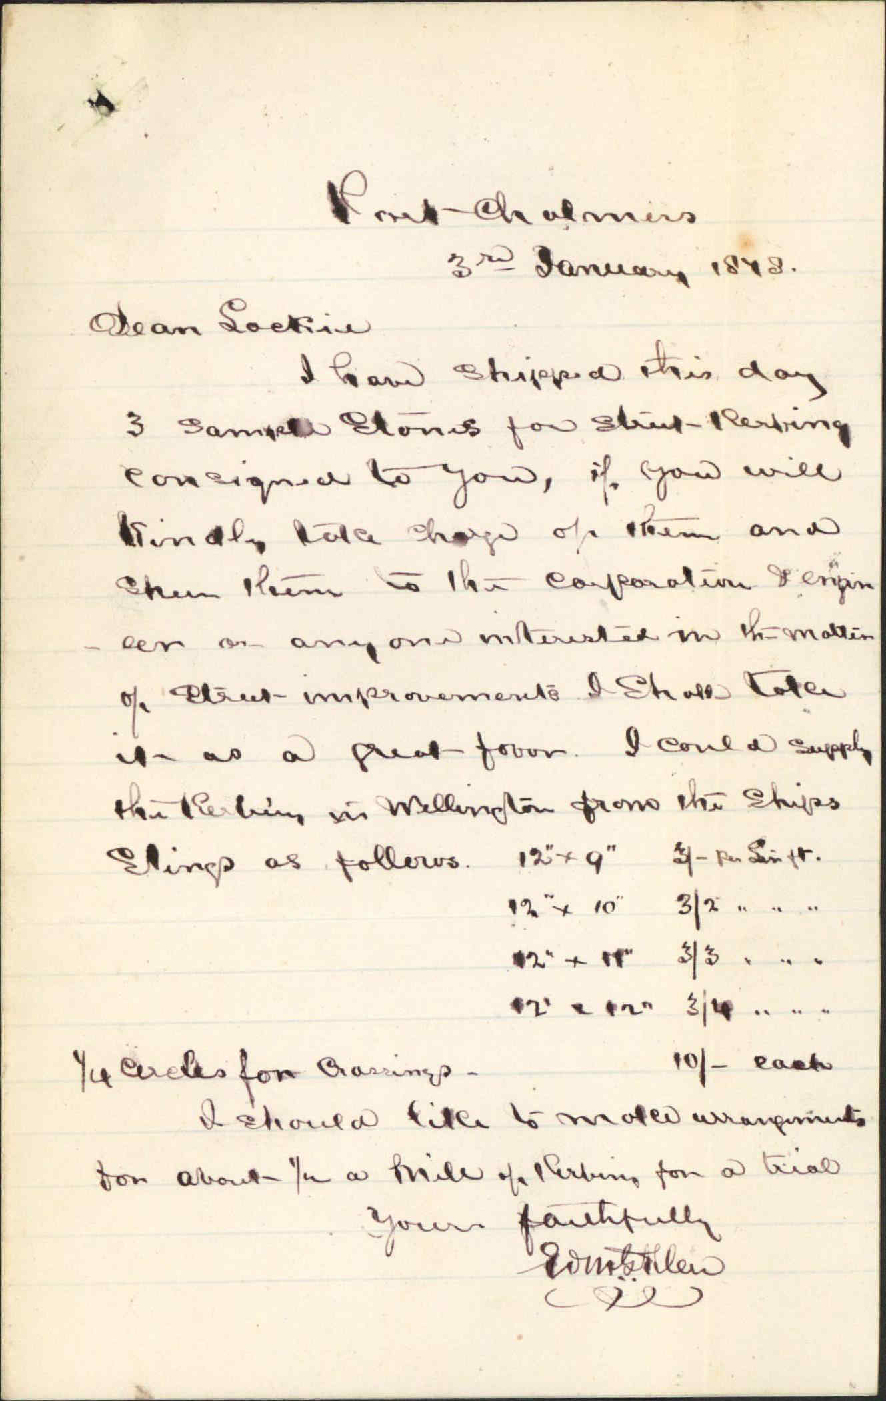 Port Chalmers
3rd January 1873.
Dear Lockie
I have shipped this day
3 Sample Stones for Street Kerbing
consigned to you, if you will
kindly take charge of them and
shew them to the Corporation Engin
-eer or any one interested in the matter
of Street improvements I shall take
it as a great favor. I could supply
the Kerbing in Wellington from the Ships
Slings as follows. 12" x 9" 3/- per Lin ft.
12" x 10" 3/2 " " "
12" x 11" 3/3 " " "
12" x 12" 3/4 " " "
1/4 Circles for Crossings - 10/- each
I should like to make arrangements
for about 1/4 a Mile of Kerbing for a trial
Yours faithfully